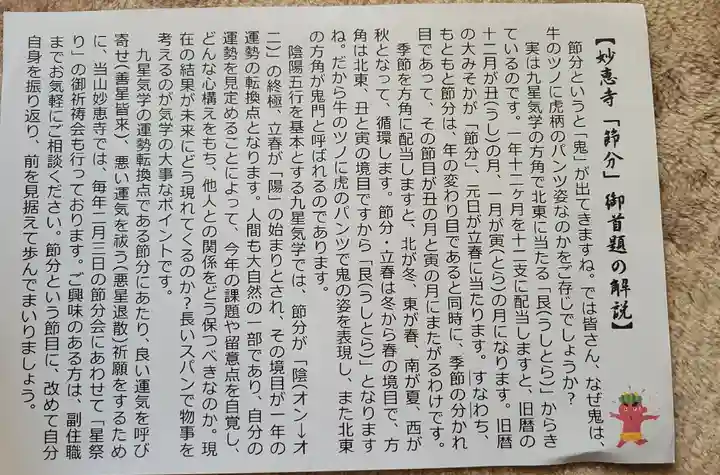 【妙恵寺「節分」御首題の解説】
節分というと「鬼」が出てきますね。では皆さん、なぜ鬼は、
牛のツノに虎柄のパンツ姿なのかをご存じでしょうか？
実は九星気学の方角で北東に当たる「艮(うしとら)」からき
ているのです。一年十二ヶ月を十二支に配当しますと、旧暦の
十二月が丑(うし)の月、一月が寅(とら)の月になります。旧暦
の大みそかが「節分」、元日が立春に当たります。すなわち、
もともと節分は、年の変わり目であると同時に、季節の分かれ
目であって、その節目が丑の月と寅の月にまたがるわけです。
季節を方角に配当しますと、北が冬、東が春、南が夏、西が
秋となって、循環します。節分・立春は冬から春の境目で、方
角は北東、丑と寅の境目ですから「艮(うしとら)」となります
ね。だから牛のツノに虎のパンツで鬼の姿を表現し、また北東
の方角が鬼門と呼ばれるのであります。
陰陽五行を基本とする九星気学では、節分が「陰(オン→オ
ニ)」の終極、立春が「陽」の始まりとされ、その境目が一年の
運勢の転換点となります。人間も大自然の一部であり、自分の
運勢を見定めることによって、今年の課題や留意点を自覚し、
どんな心構えをもち、他人との関係をどう保つべきなのか。現
在の結果が未来にどう現れてくるのか？長いスパンで物事を
考えるのが気学の大事なポイントです。
九星気学の運勢転換点である節分にあたり、良い運気を呼び
寄せ(善星皆来)　悪い運気を祓う(悪星退散)祈願をするため
に、当山妙恵寺では、毎年二月三日の節分会にあわせて「星祭
り」の御祈祷会も行っております。ご興味のある方は、副住職
までお気軽にご相談ください。節分という節目に、改めて自分
自身を振り返り、前を見据えて歩んでまいりましょう。